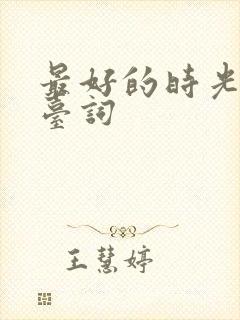 最好的時光
臺詞
王慧婷